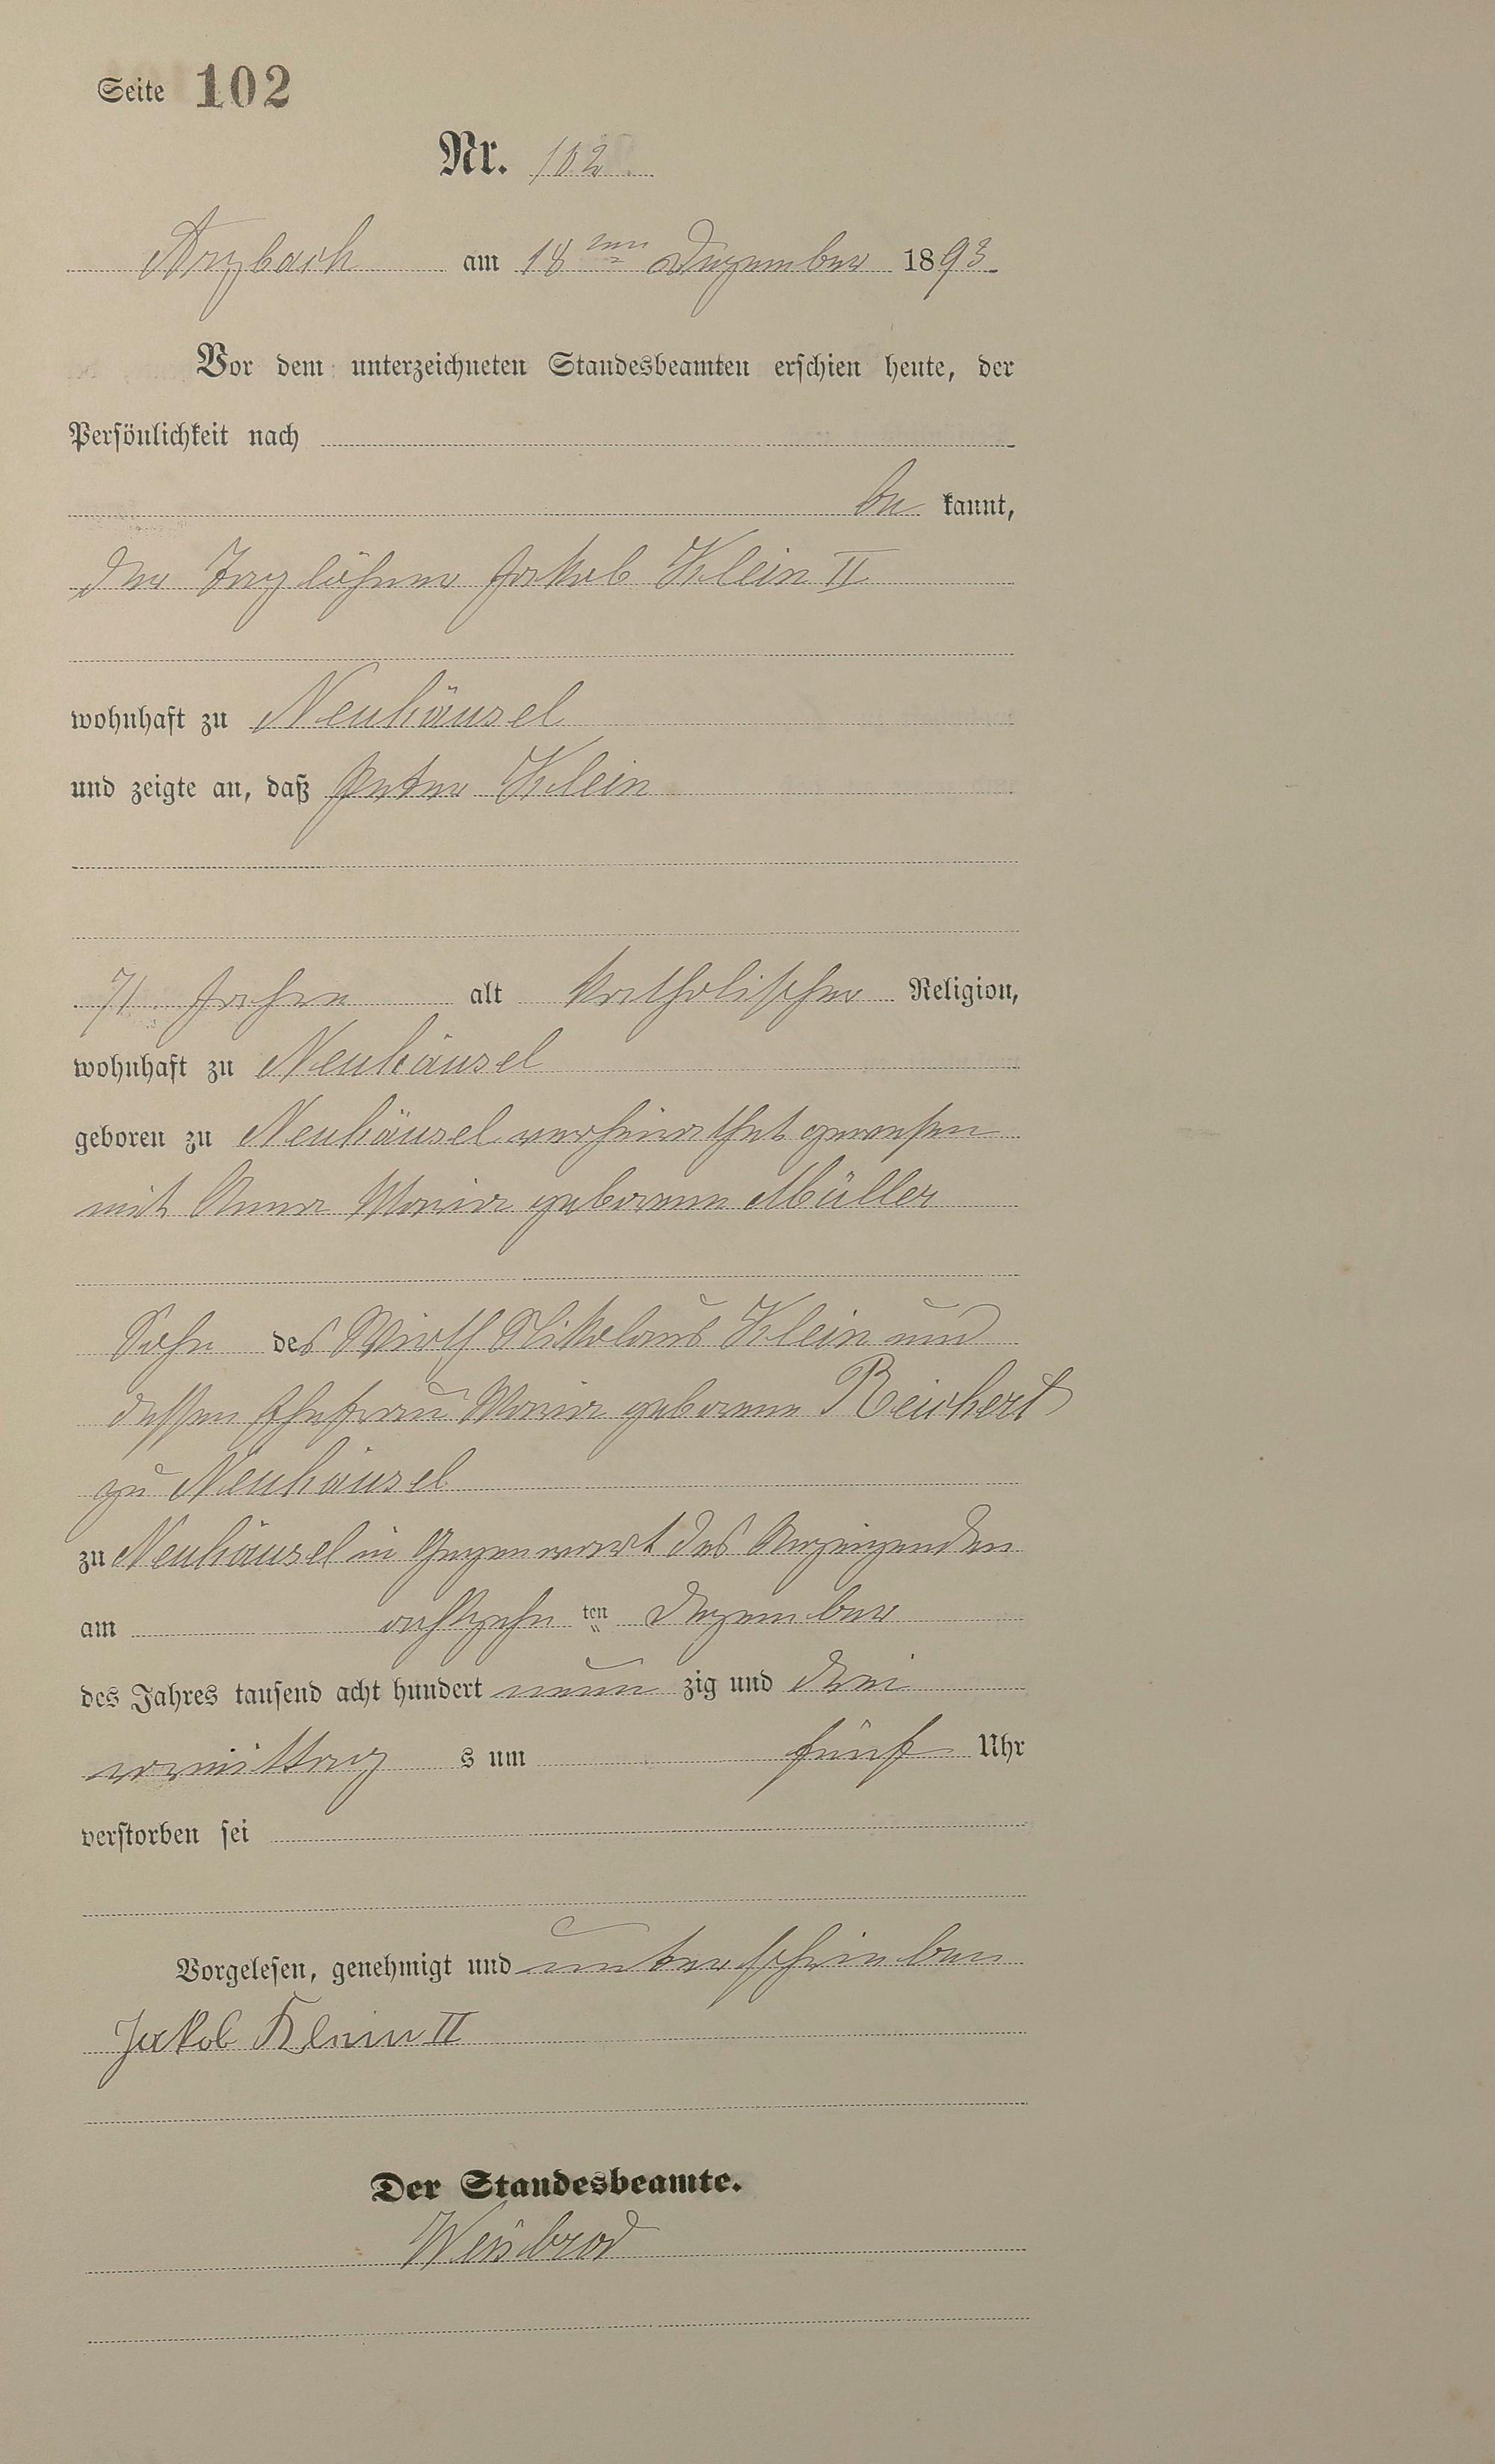 Seite 102
Nr. 102
Arzbach am 18ten Dezember 1893
Vor dem unterzeichneten Standesbeamten erschien heute, der
Persönlichkeit nach
be kannt,
der Taglöhner Jakob Klein II
wohnhaft zu Neuhäusel
und zeigte an, daß Peter Klein
71 Jahre alt katholischer Religion,
wohnhaft zu Neuhäusel
geboren zu Neuhäusel verheirathet gewesen
mit Anna Maria geborene Müller
Sohn des Wirth Nikolaus Klein und
dessen Ehefrau Maria geborene Reichert
zu Neuhäusel
zu Neuhäusel in Gegenwart des Anzeigenden
am achtzehn ten Dezember
des Jahres tausend acht hundert neun zig und drei
vormittag s um fünf Uhr
verstorben sei
Vorgelesen, genehmigt und unterschrieben
Jakob Klein II
Der Standesbeamte.
Weisbrod